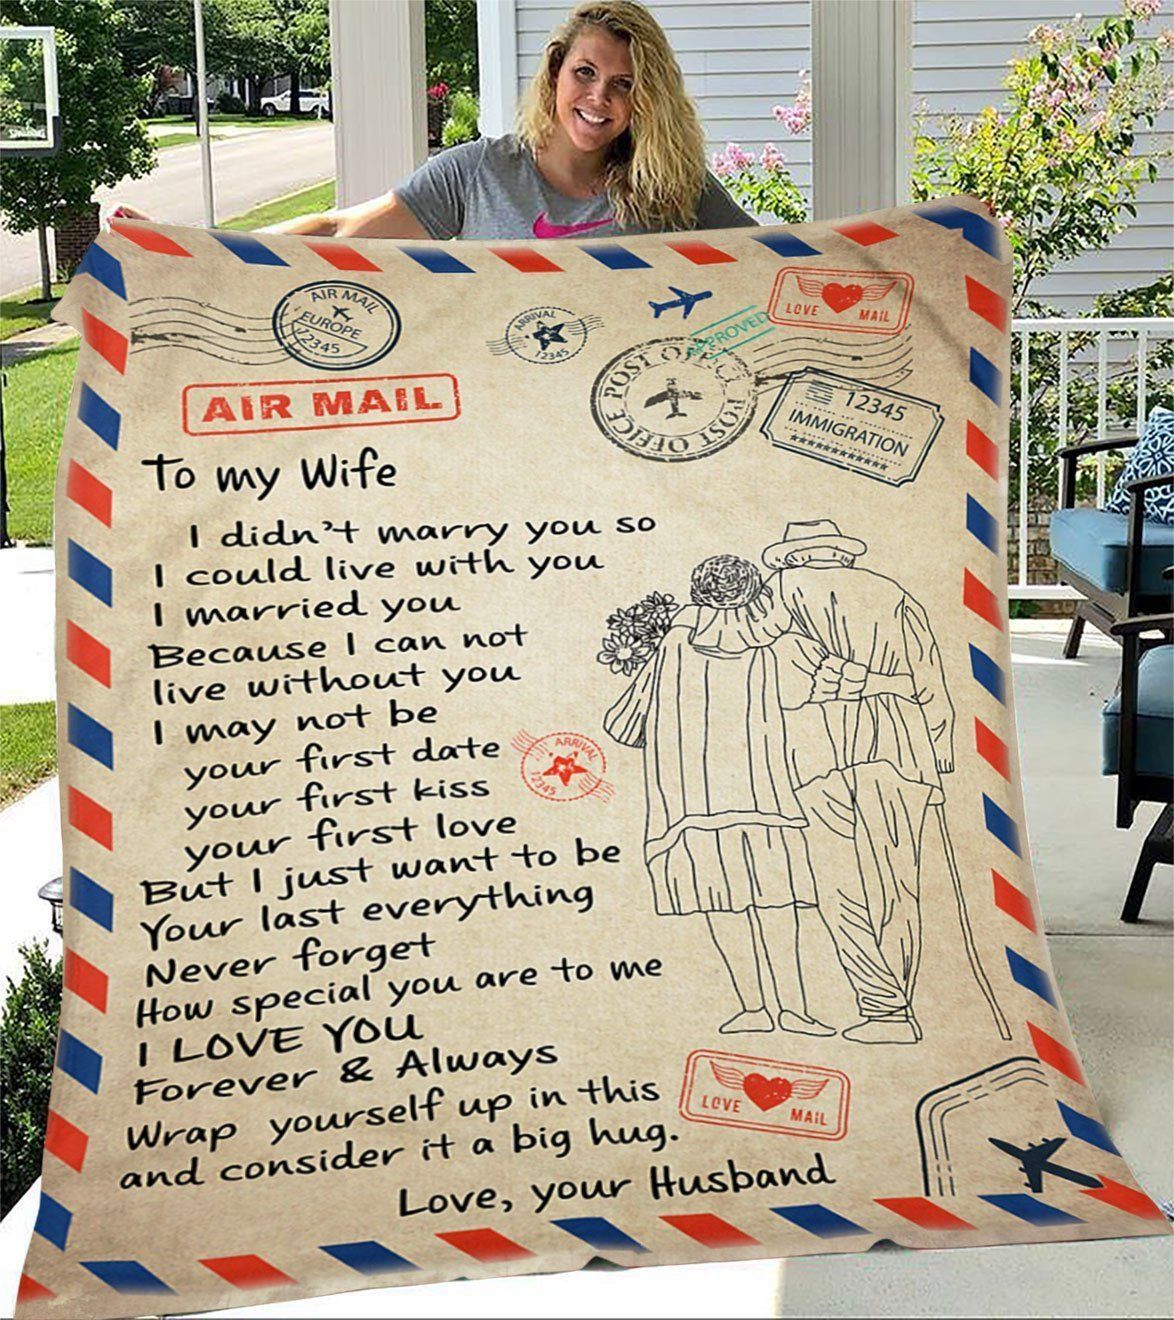 AIR MAIL
EUROPE
12345
ARRIVAL
12345
APPROVED
LOVE MAIL
POST OFFICE
POST OFFICE
12345
IMMIGRATION
AIR MAIL
To my Wife
I didn't marry you so
I could live with you
I married you
Because I can not
live without you
I may not be
your first date
your first kiss
your first love
But I just want to be
Your last everything
Never forget
How special you are to me
I LOVE YOU
Forever & Always
Wrap yourself up in this
and consider it a big hug.
Love, your Husband
ARRIVAL
12345
LOVE MAIL